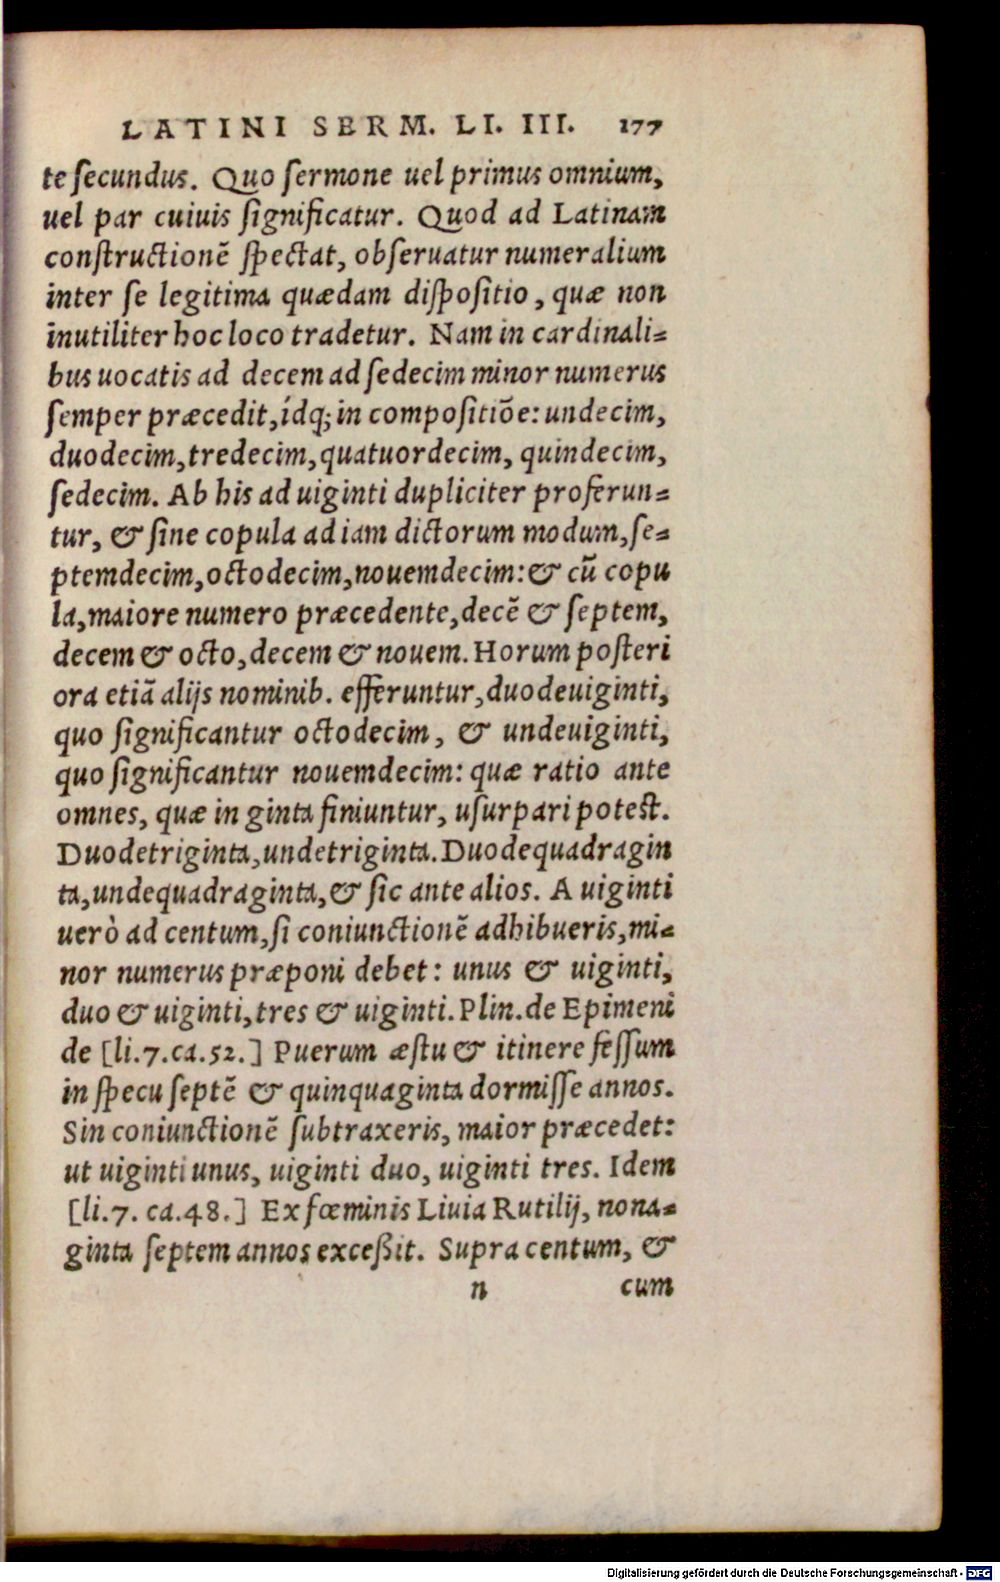 LATINI SERM. LI. III. 177
te ſecundus. Quo ſermone uel primus omnium,
uel par cuiuis ſignificatur. Quod ad Latinam
conſtructionē ſpectat, obſeruatur numeralium
inter ſe legitima quædam diſpoſitio, quæ non
inutiliter hoc loco tradetur. Nam in cardinali⸗
bus uocatis ad decem ad ſedecim minor numerus
ſemper præcedit, ídq; in compoſitiōe: undecim,
duodecim, tredecim, quatuordecim, quindecim,
ſedecim. Ab his ad uiginti dupliciter proferun⸗
tur, & ſine copula ad iam dictorum modum, ſe⸗
ptemdecim, octodecim, nouemdecim: & cū copu
la, maiore numero præcedente, decē & ſeptem,
decem & octo, decem & nouem. Horum poſteri
ora etiā alijs nominib. efferuntur, duodeuiginti,
quo ſignificantur octodecim, & undeuiginti,
quo ſignificantur nouemdecim: quæ ratio ante
omnes, quæ in ginta finiuntur, uſurpari poteſt.
Duodetriginta, undetriginta. Duodequadragin
ta, undequadraginta, & ſic ante alios. A uiginti
uerò ad centum, ſi coniunctionē adhibueris, mi⸗
nor numerus præponi debet: unus & uiginti,
duo & uiginti, tres & uiginti. Plin. de Epimeni
de [li.7.ca.52.] Puerum æſtu & itinere feſſum
in ſpecu ſeptē & quinquaginta dormiſſe annos.
Sin coniunctionē ſubtraxeris, maior præcedet:
ut uiginti unus, uiginti duo, uiginti tres. Idem
[li.7. ca.48.] Ex fœminis Liuia Rutilij, nona⸗
ginta ſeptem annos exceßit. Supra centum, &
n cum
Digitalisierung gefördert durch die Deutsche Forschungsgemeinschaft - DFG